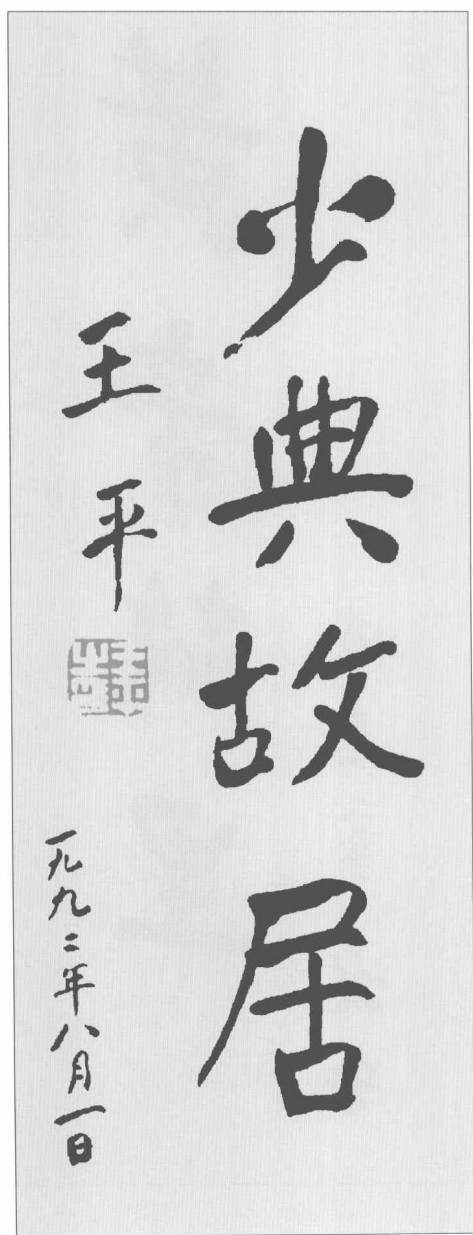 少典故居
王平
一九九二年八月一日